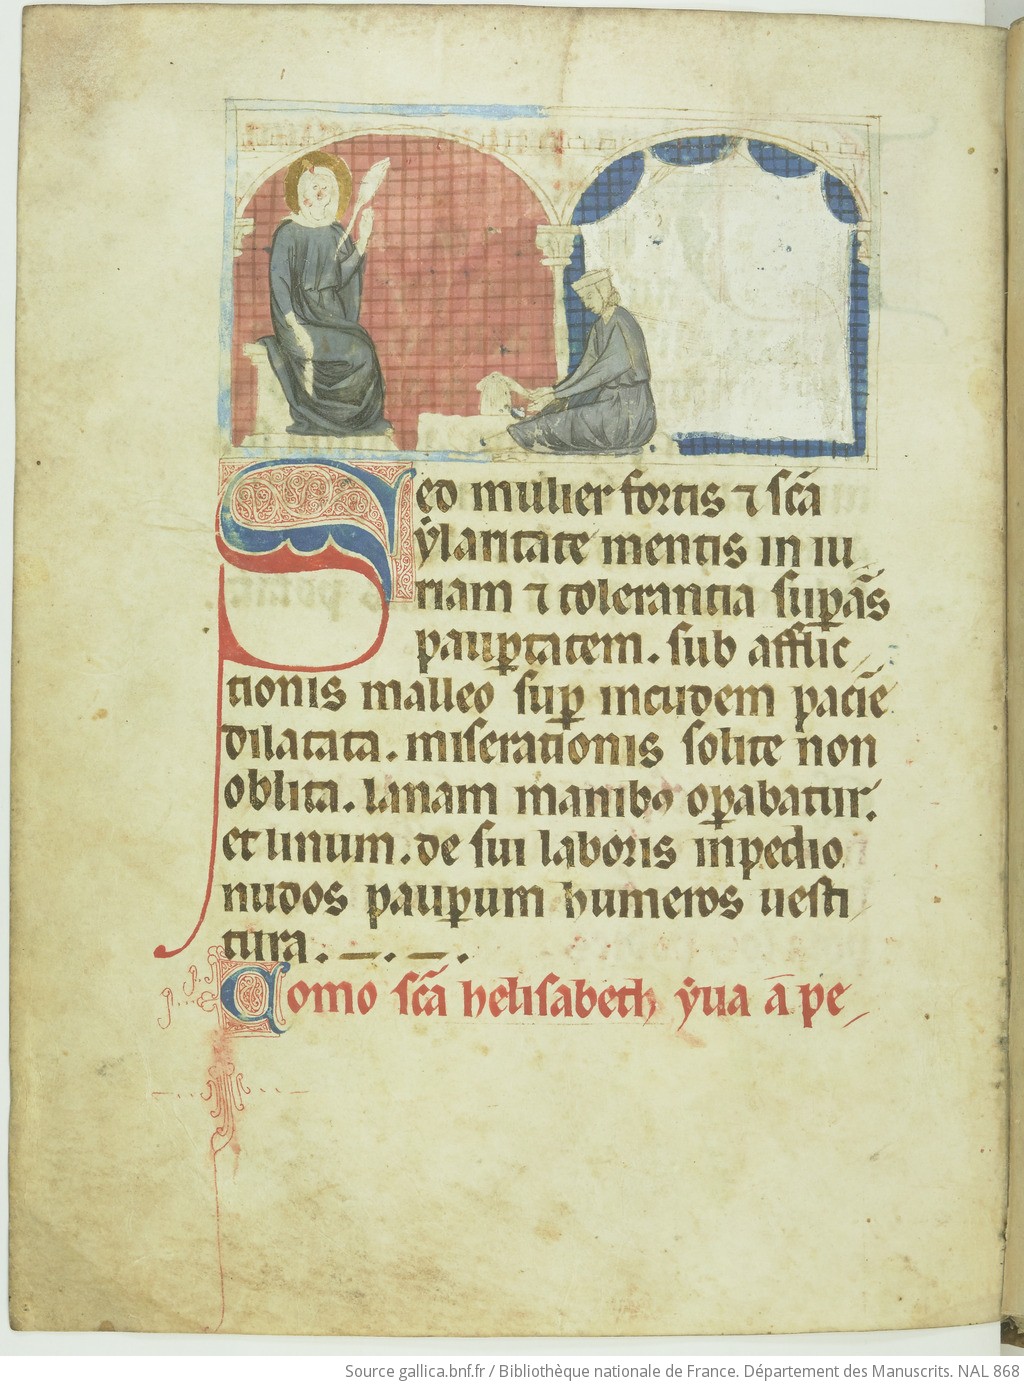 Sed mulier fortis ⁊ sc̄a
ẏlaritate mentis in iu
riam ⁊ tolerantia suꝑās
pauꝑtatem. sub afflic
tionis malleo suꝑ incudem pacīe
dilatata. miserationis solite non
oblita. lanam manibꝯ oꝑabatur.
et linum. de sui laboris inpedio
nudos pauꝑum humeros uesti
tura. — . — .
Como sc̄a helisabeth ẏua ā pe
Source gallica.bnf.fr / Bibliothèque nationale de France. Département des Manuscrits. NAL 868